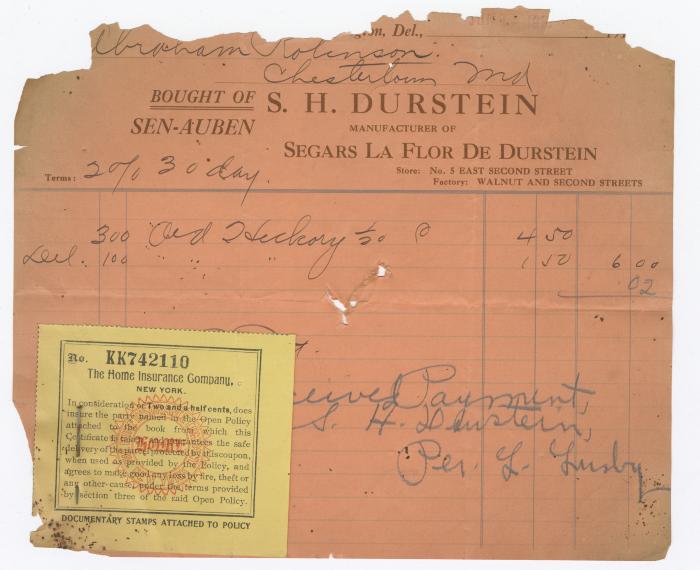 Del.,
Abraham Robinson.
Chestertown Md
BOUGHT OF S. H. DURSTEIN
SEN-AUBEN
MANUFACTURER OF
SEGARS LA FLOR DE DURSTEIN
Store: No. 5 EAST SECOND STREET
Factory: WALNUT AND SECOND STREETS
Terms: 2% 30 day.
300 Old Hickory 1/20 4 50
Del. 100 " " 1 50 6 00
02
Received Payment,
S. H. Durstein,
Per. L. Lusby
No. KK742110
The Home Insurance Company,
NEW YORK.
In consideration of Two and a half cents, does
insure the party named in the Open Policy
attached to the book from which this
Certificate is taken and guarantees the safe
delivery of the parcel protected by this coupon,
when used as provided by the Policy, and
agrees to make good any loss by fire, theft or
any other cause, under the terms provided
by section three of the said Open Policy.
DOCUMENTARY STAMPS ATTACHED TO POLICY